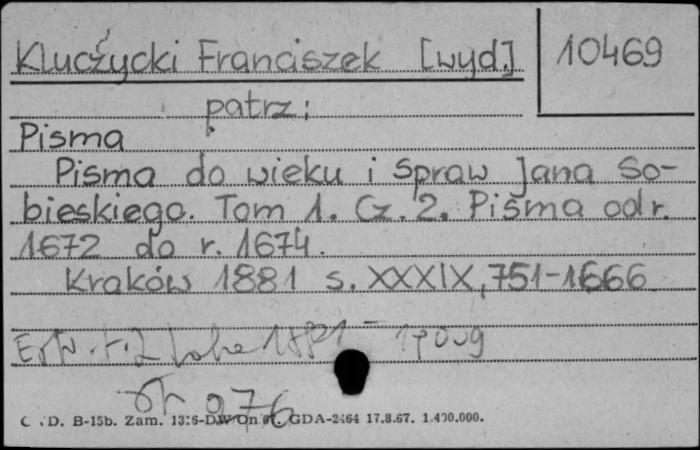 Kluczycki Franciszek [wyd.]
10469
patrz:
Pisma
Pisma do wieku i spraw Jana So-
bieskiego. Tom 1. Cz. 2. Pisma od r.
1672 do r. 1674.
Kraków 1881 s. XXXIX, 751-1666
D. B-15b. Zam. GDA-2464 17.8.67. 1.400.000.